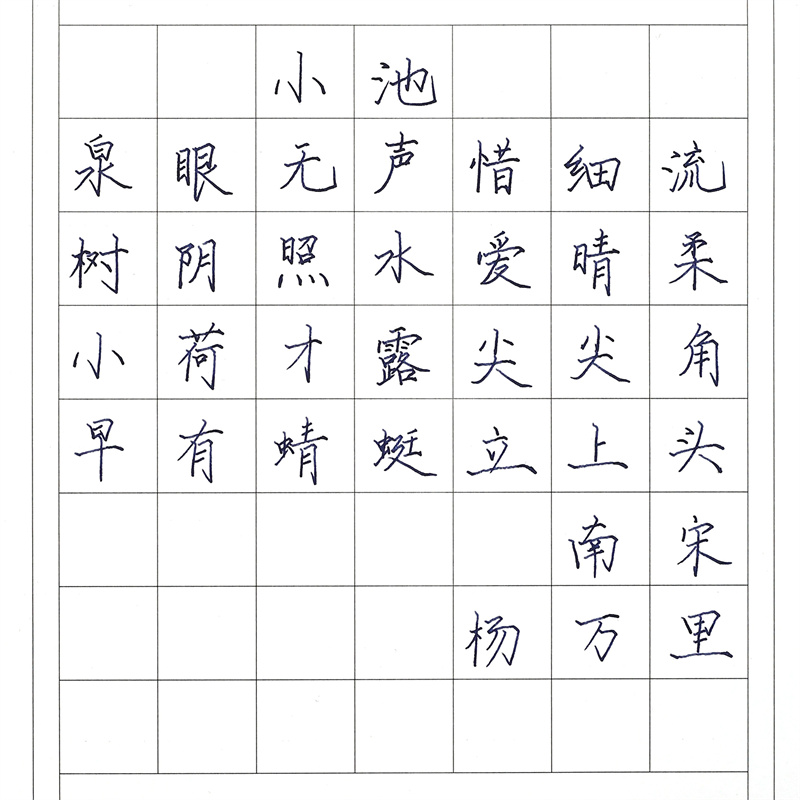 小池
泉眼无声惜细流
树阴照水爱晴柔
小荷才露尖尖角
早有蜻蜓立上头
南宋
杨万里